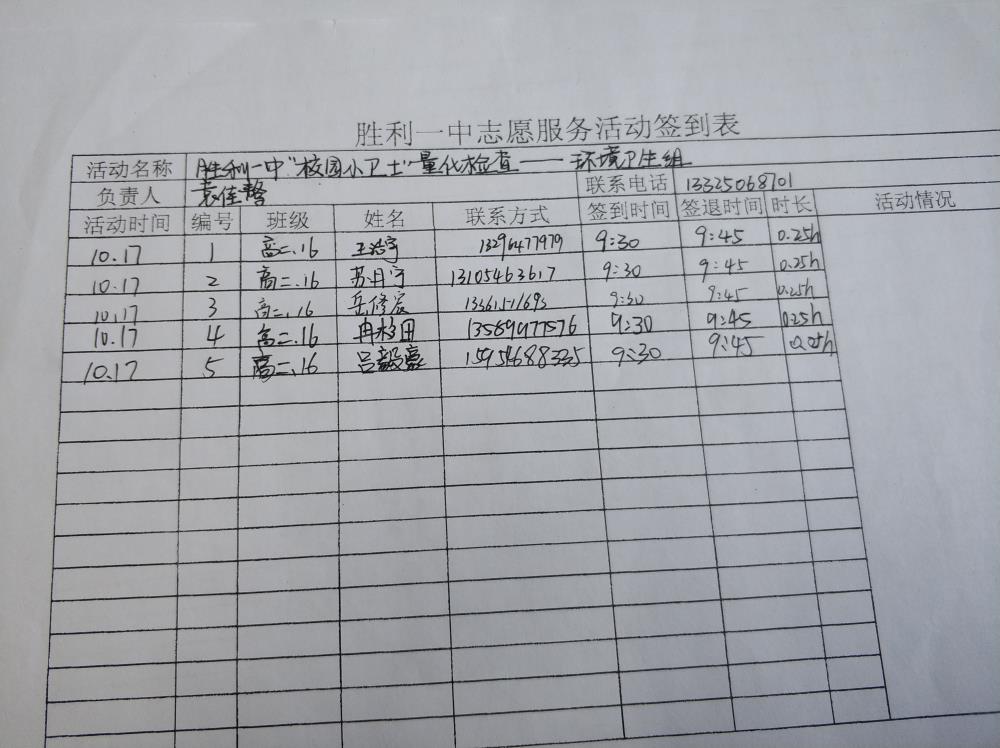 胜利一中志愿服务活动签到表
活动名称 胜利一中"校园小卫士"量化检查——环境卫生组
负责人 袁佳 联系电话 13325068701
活动时间 编号 班级 姓名 联系方式 签到时间 签退时间 时长 活动情况
10.17 1 高二.16 王浩宇 13296477979 9:30 9:45 0.25h
10.17 2 高二.16 苏丹宁 13105463617 9:30 9:45 0.25h
10.17 3 高二.16 岳修宸 9:30 9:45 0.25h
10.17 4 高二.16 冉 13589977576 9:30 9:45 0.25h
10.17 5 高二.16 吕毅豪 9:30 9:45 0.25h